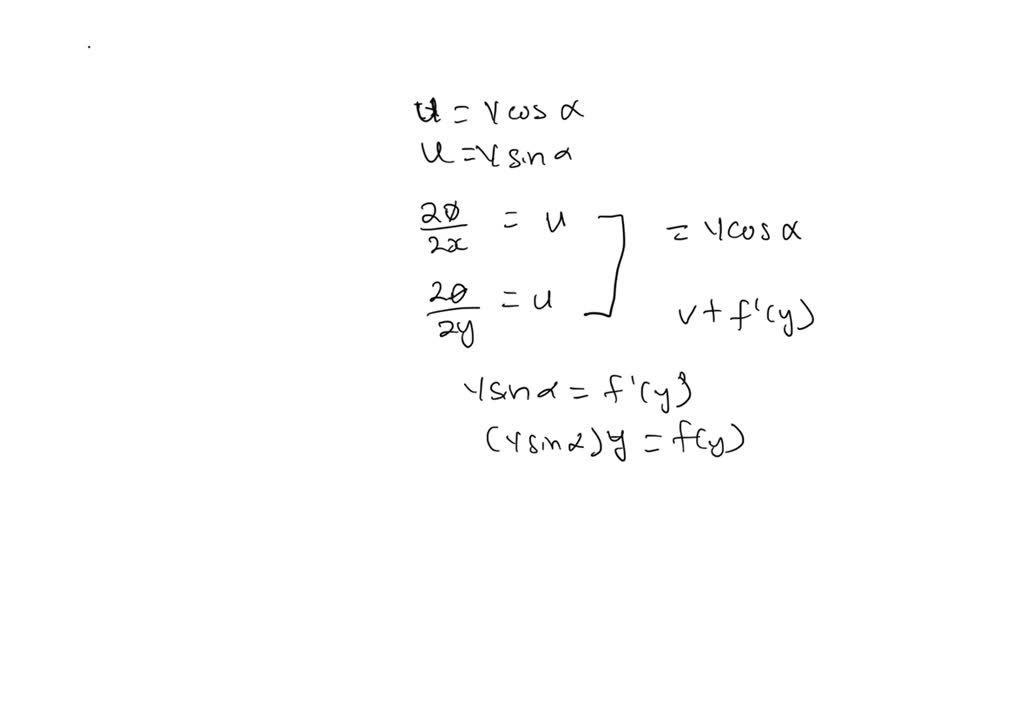 u = V cos α
u = V sin α
2φ/2x = u ] = V cos α
2θ/2y = u v + f'(y)
V sin α = f'(y)
(V sin α) y = f(y)